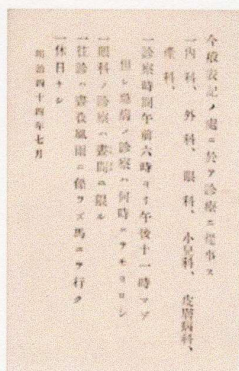 今般表記ノ處ニ於テ診療ニ從事ス
一內科、外科、眼科、小兒科、皮膚病科、
產科、
一診察時間午前六時ヨリ午後十一時マデ
但シ急病ノ診察ハ何時ニテモヨロシ
一眼科ノ診察ハ晝間ニ限ル
一往診ハ晝夜風雨ニ係ラズ馬ニテ行ク
一休日ナシ
明治四十四年七月